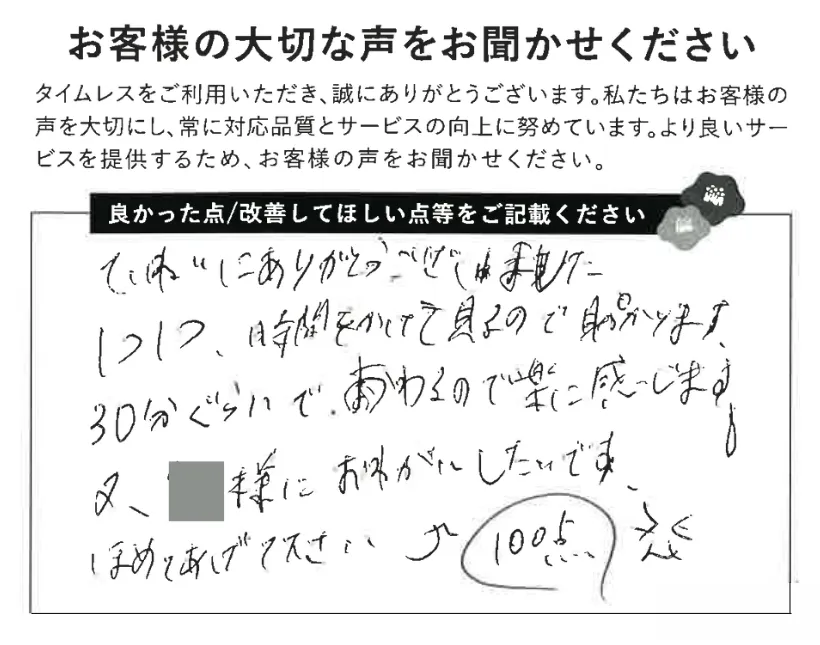 お客様の大切な声をお聞かせください
タイムレスをご利用いただき、誠にありがとうございます。私たちはお客様の
声を大切にし、常に対応品質とサービスの向上に努めています。より良いサー
ビスを提供するため、お客様の声をお聞かせください。
良かった点/改善してほしい点等をご記載ください
ていねいにありがとうございました
1つ1つ、時間をかけて見るので助かります、
30分ぐらいで、おわるので楽に感じます!
又、様におねがいしたいです、
ほめてあげて下さい 100点